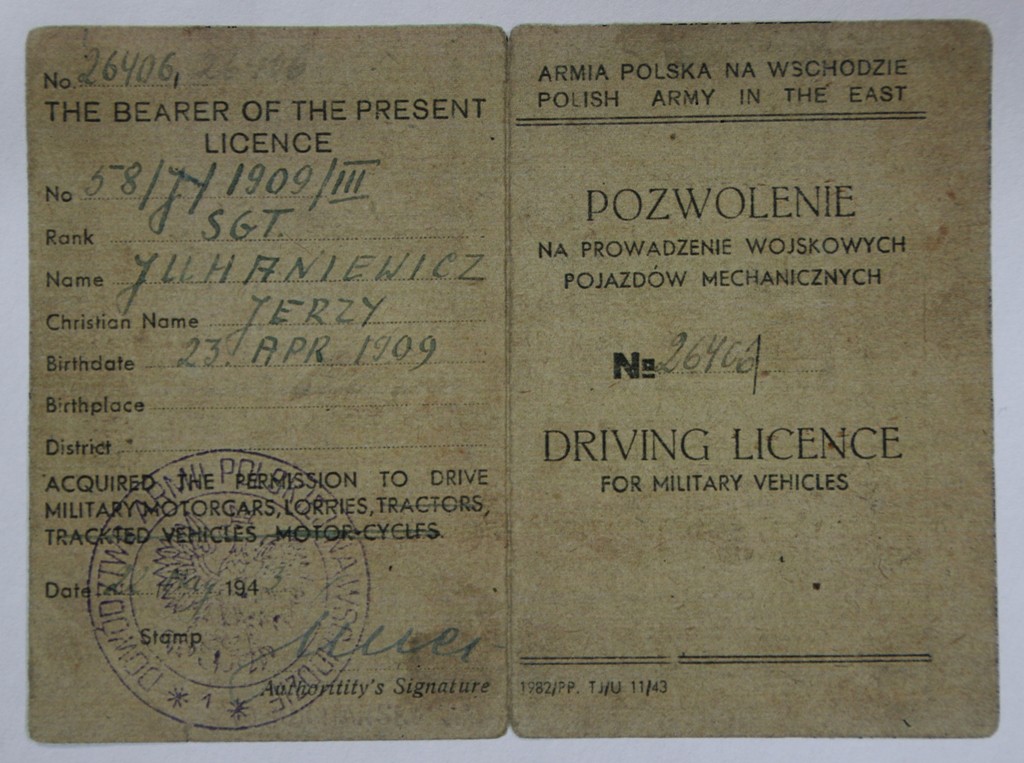 No. 26406, 26406
THE BEARER OF THE PRESENT
LICENCE
No 58/J/1909/III
Rank SGT.
Name JUHANIEWICZ
Christian Name JERZY
Birthdate 23. APR 1909
Birthplace
District
ACQUIRED THE PERMISSION TO DRIVE
MILITARY MOTORCARS, LORRIES, TRACTORS,
TRACKTED VEHICLES, MOTOR-CYCLES.
Date 194
Stamp
Authoritity's Signature
DOWÓDZTWO ARMII POLSKIEJ NA WSCHODZIE * 1 *
ARMIA POLSKA NA WSCHODZIE
POLISH ARMY IN THE EAST
POZWOLENIE
NA PROWADZENIE WOJSKOWYCH
POJAZDÓW MECHANICZNYCH
№ 26406
DRIVING LICENCE
FOR MILITARY VEHICLES
1982/PP. TJ/U 11/43